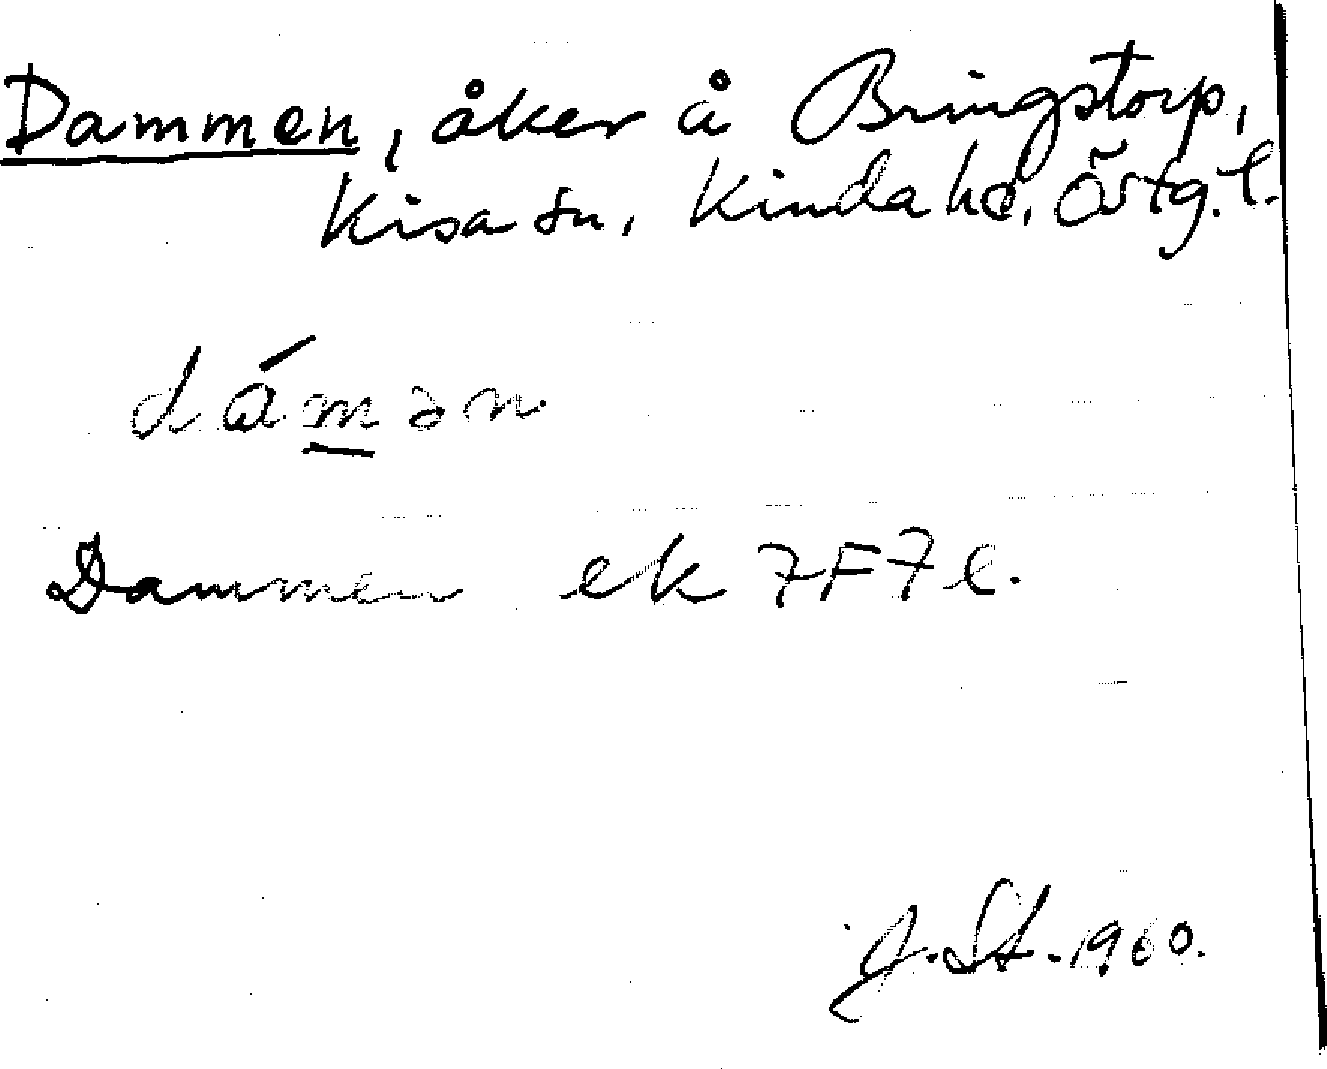 Dammen, åker å Bringstorp,
Kisa sn, Kinda hd. Östg. l.
dámən
Dammen ek 7F7e.
J. St. 1960.